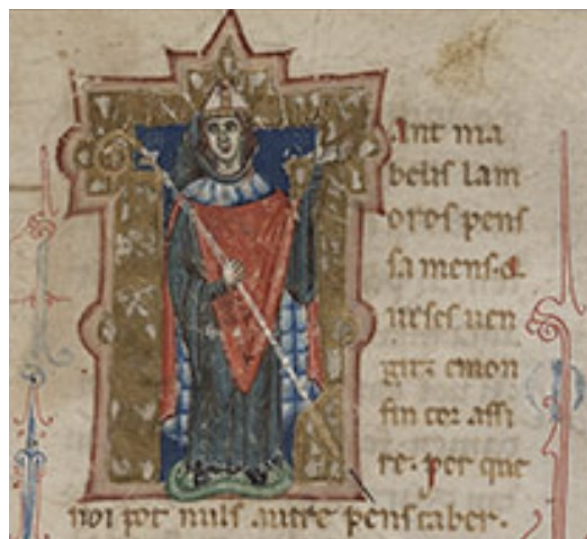 ant ma
belis lam
oros pens
samens. &
uescs uen
girz emon
fin cor assi
re. per que
noi pot nuls autre pens caber.